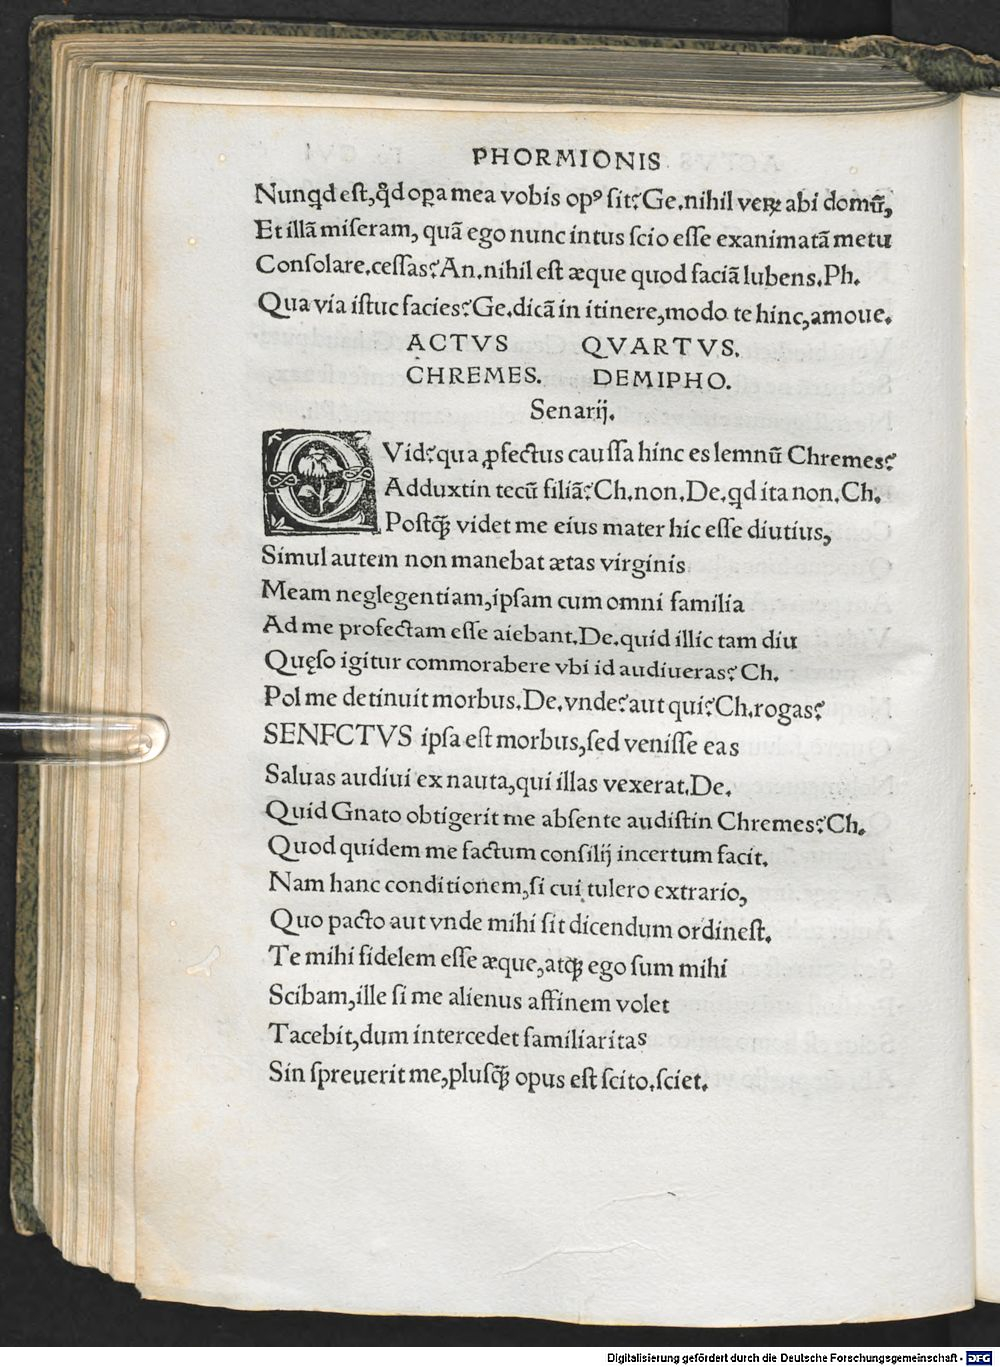 PHORMIONIS
Nunqd est, qd opa mea vobis opꝰ sit? Ge. nihil veꝝ abi domū,
Et illā miseram, quā ego nunc intus scio esse exanimatā metu
Consolare. cessas? An. nihil est æque quod faciā lubens. Ph.
Qua via istuc facies? Ge. dicā in itinere, modo te hinc, amoue.
ACTVS QVARTVS.
CHREMES. DEMIPHO.
Senarij.
QVid? qua ꝓfectus caussa hinc es lemnū Chremes?
Adduxtin tecū filiā? Ch. non. De. qd ita non. Ch.
Postꝙ̄ videt me eius mater hic esse diutius,
Simul autem non manebat ætas virginis
Meam neglegentiam, ipsam cum omni familia
Ad me profectam esse aiebant. De. quid illic tam diu
Quęso igitur commorabere vbi id audiueras? Ch.
Pol me detinuit morbus. De. vnde? aut qui? Ch. rogas?
SENFCTVS ipsa est morbus, sed venisse eas
Saluas audiui ex nauta, qui illas vexerat. De.
Quid Gnato obtigerit me absente audistin Chremes? Ch.
Quod quidem me factum consilij incertum facit.
Nam hanc conditionem, si cui tulero extrario,
Quo pacto aut vnde mihi sit dicendum ordinest.
Te mihi fidelem esse æque, atqꝫ ego sum mihi
Scibam, ille si me alienus affinem volet
Tacebit, dum intercedet familiaritas
Sin spreuerit me, plusꝙ̄ opus est scito. sciet.
Digitalisierung gefördert durch die Deutsche Forschungsgemeinschaft - DFG